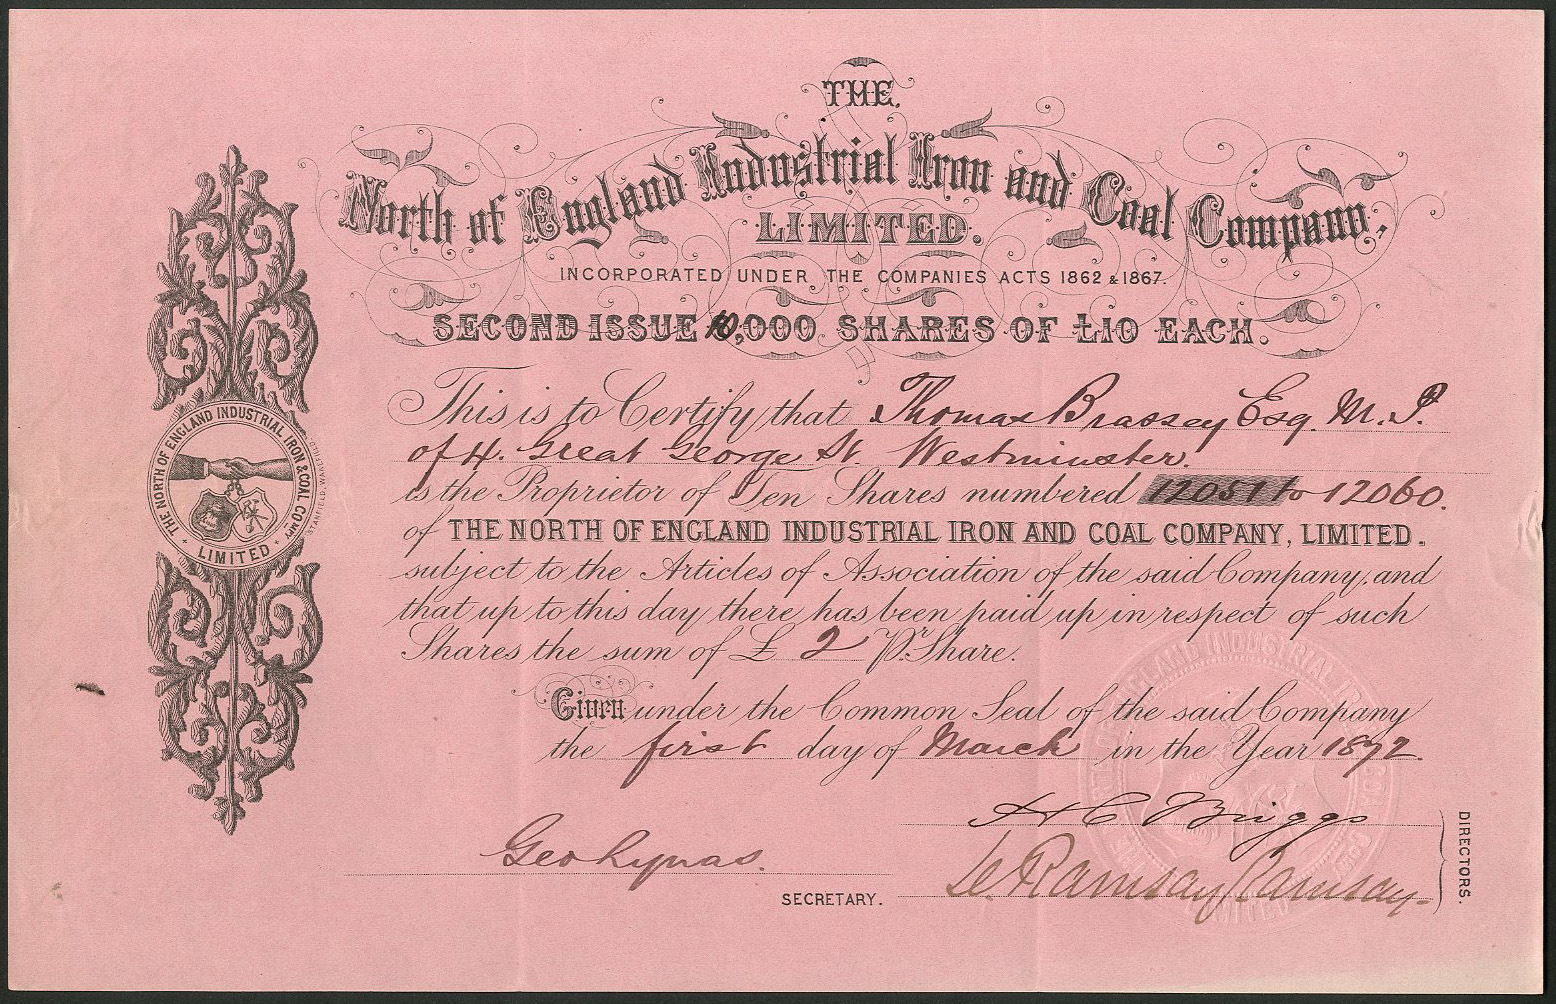 THE.
North of England Industrial Iron and Coal Company,
LIMITED.
INCORPORATED UNDER THE COMPANIES ACTS 1862 & 1867.
SECOND ISSUE 10,000 SHARES OF £10 EACH.
This is to Certify that Thomas Brassey Esq. M.P.
of 4. Great George St. Westminster.
is the Proprietor of Ten Shares numbered 12051 to 12060.
of THE NORTH OF ENGLAND INDUSTRIAL IRON AND COAL COMPANY, LIMITED.
subject to the Articles of Association of the said Company, and
that up to this day there has been paid up in respect of such
Shares the sum of £ 2 Pr. Share.
Given under the Common Seal of the said Company
the first day of March in the Year 1872.
H C Briggs
Ramsay Ramsay
DIRECTORS.
Geo
SECRETARY.
THE NORTH OF ENGLAND INDUSTRIAL IRON & COAL COMPY
LIMITED
STANFIELD. WAKEFIELD
ENGLAND INDUSTRIAL IRON
LIMITED